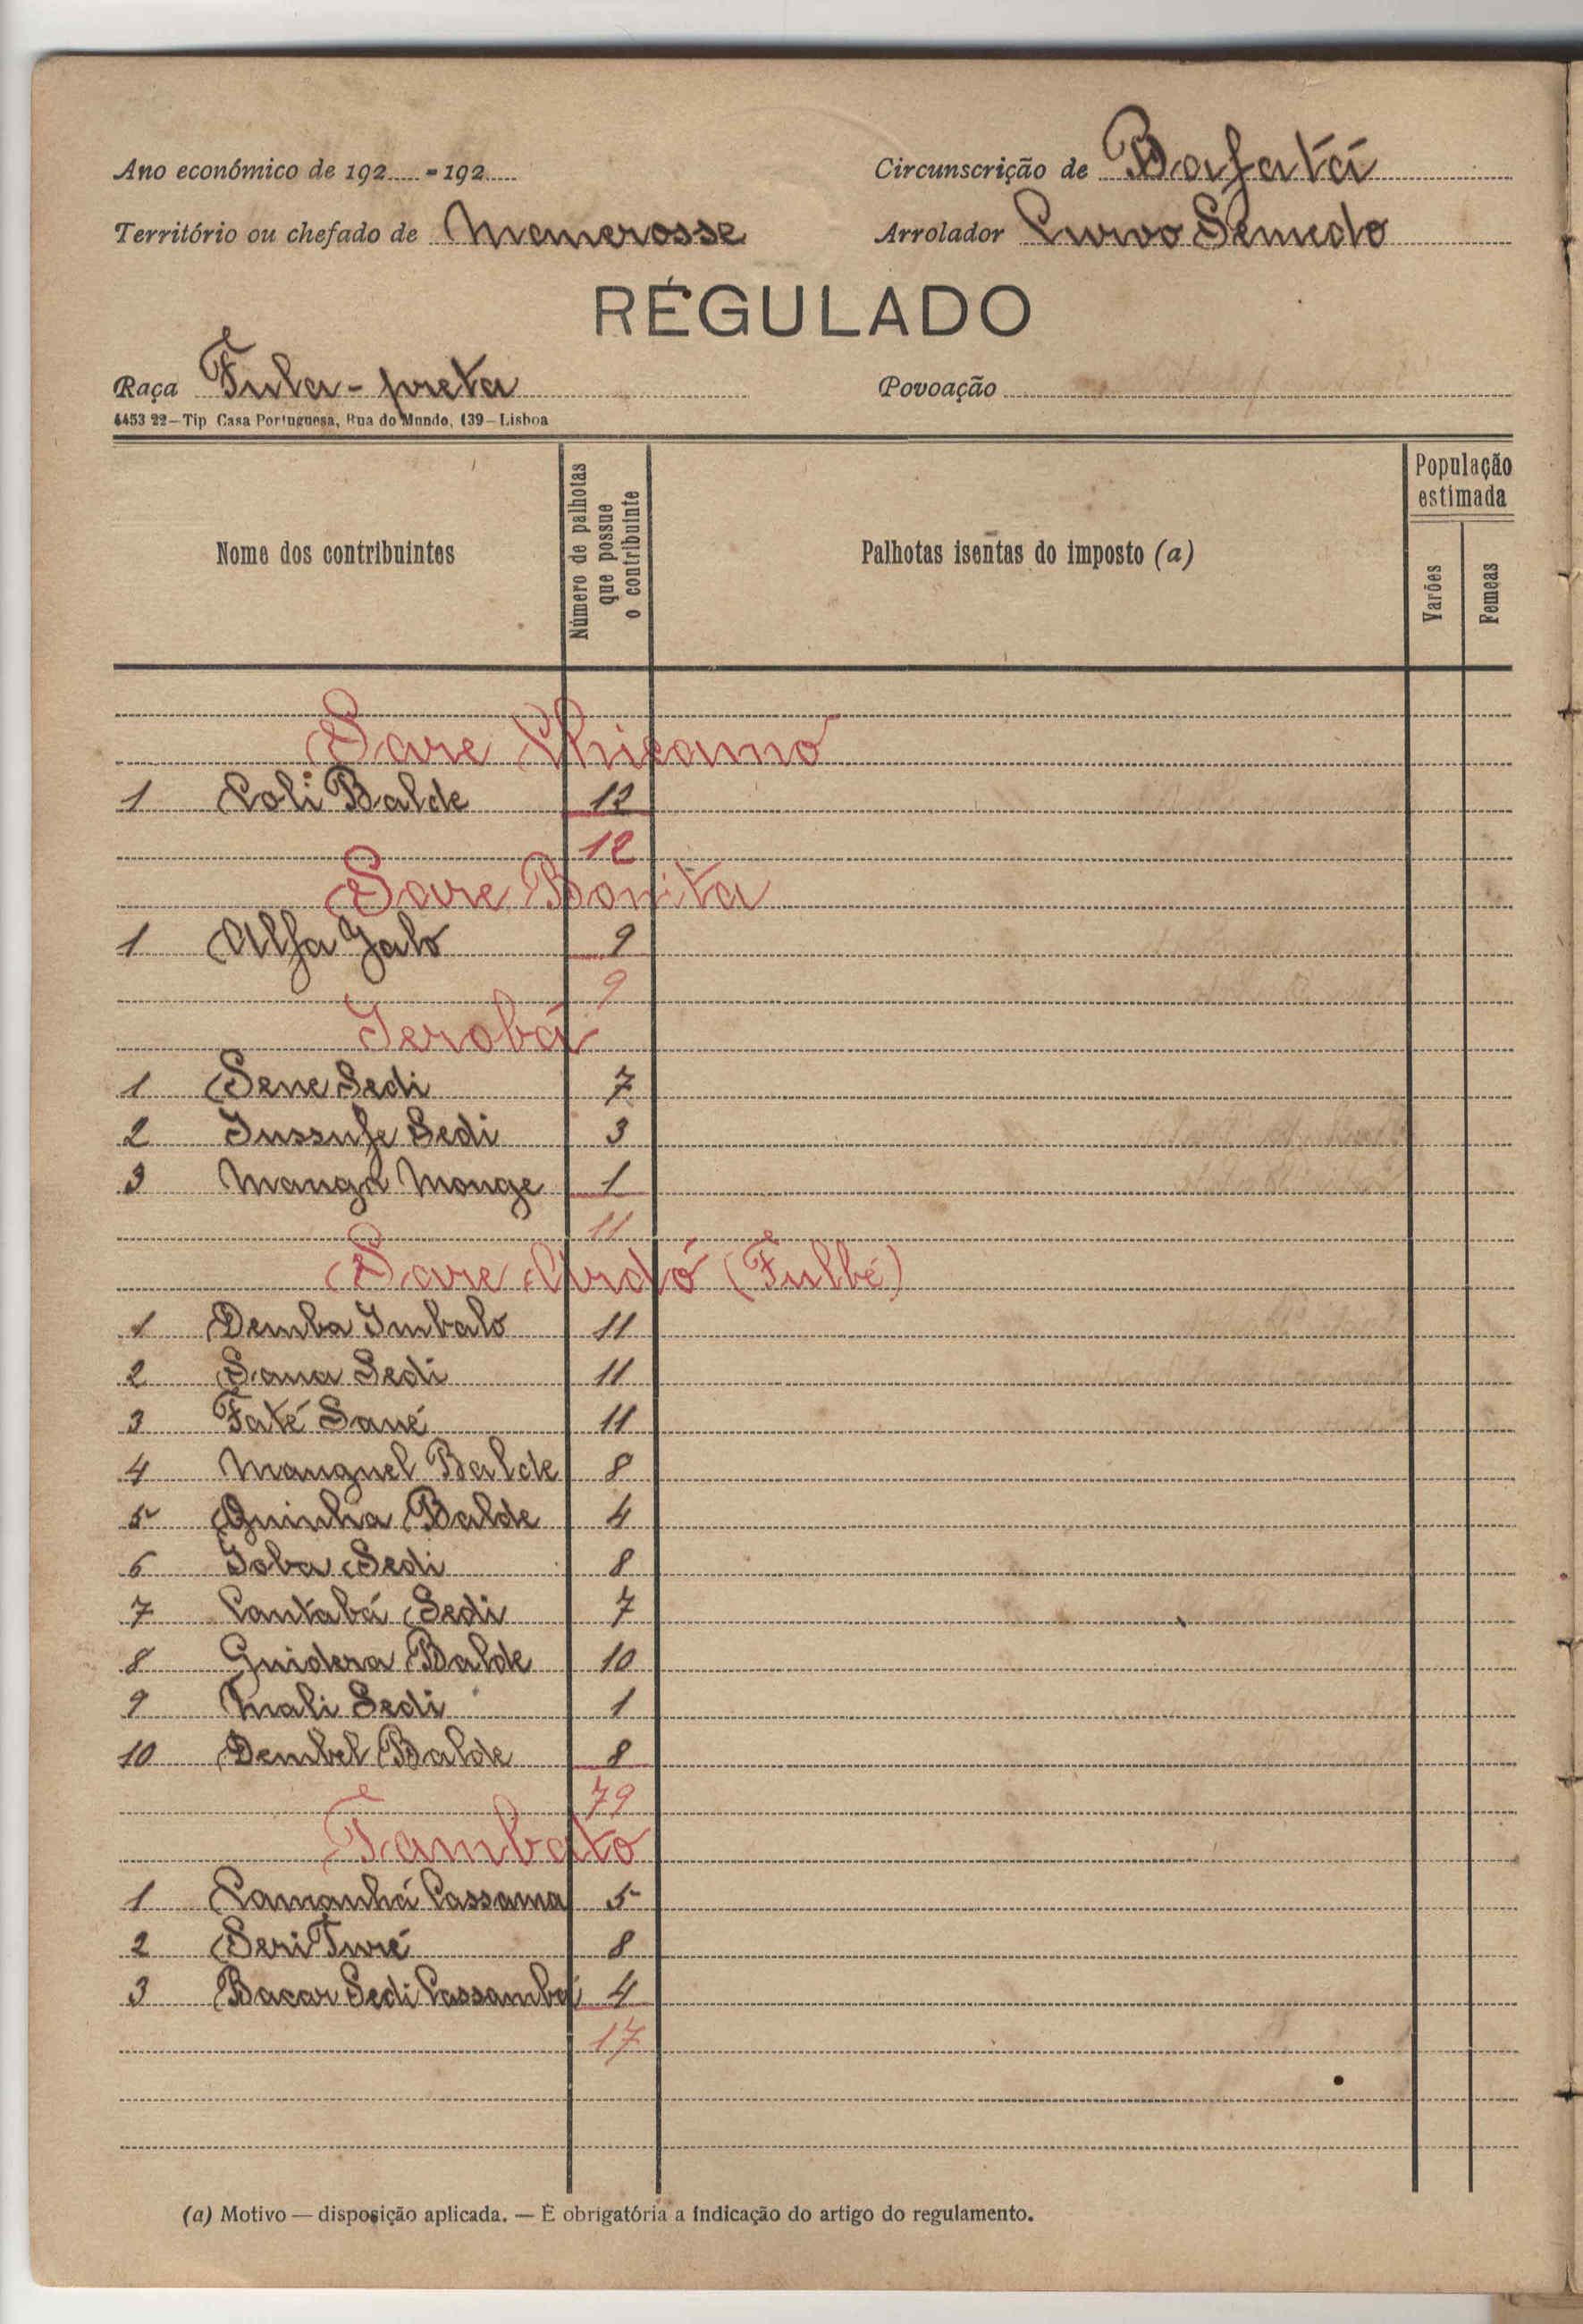 Ano económico de 192..... - 192..... Circunscrição de Bafatá
Território ou chefado de Mamerosse Arrolador Curvo Semedo
RÉGULADO
Raça Fula-preta Povoação
4453 22—Tip Casa Portuguesa, Rua do Mundo, 139—Lisboa
Nome dos contribuintes Número de palhotas que possue o contribuinte Palhotas isentas do imposto (a) População estimada Varões Femeas
Sare
1 Coli Balde 12
12
Sare Bonita
1 Alfa Jaló 9
9
Jerobá
1 Sene Sedi 7
2 Jussufe Sedi 3
3 Manga Monge 1
11
Sare Ardó (Fulbé)
1 Demba Imbalo 11
2 Sana Sedi 11
3 Faté Sané 11
4 Manguel Balde 8
5 Quinha Balde 4
6 Joba Sedi 8
7 Cantabá Sedi 7
8 Guidera Balde 10
9 Mali Sedi 1
10 Dembel Balde 8
79
Tambato
1 Lamanhá Cassama 5
2 Seri Turé 8
3 Bacar Sedi Cassambá 4
17
(a) Motivo — disposição aplicada. — É obrigatória a indicação do artigo do regulamento.